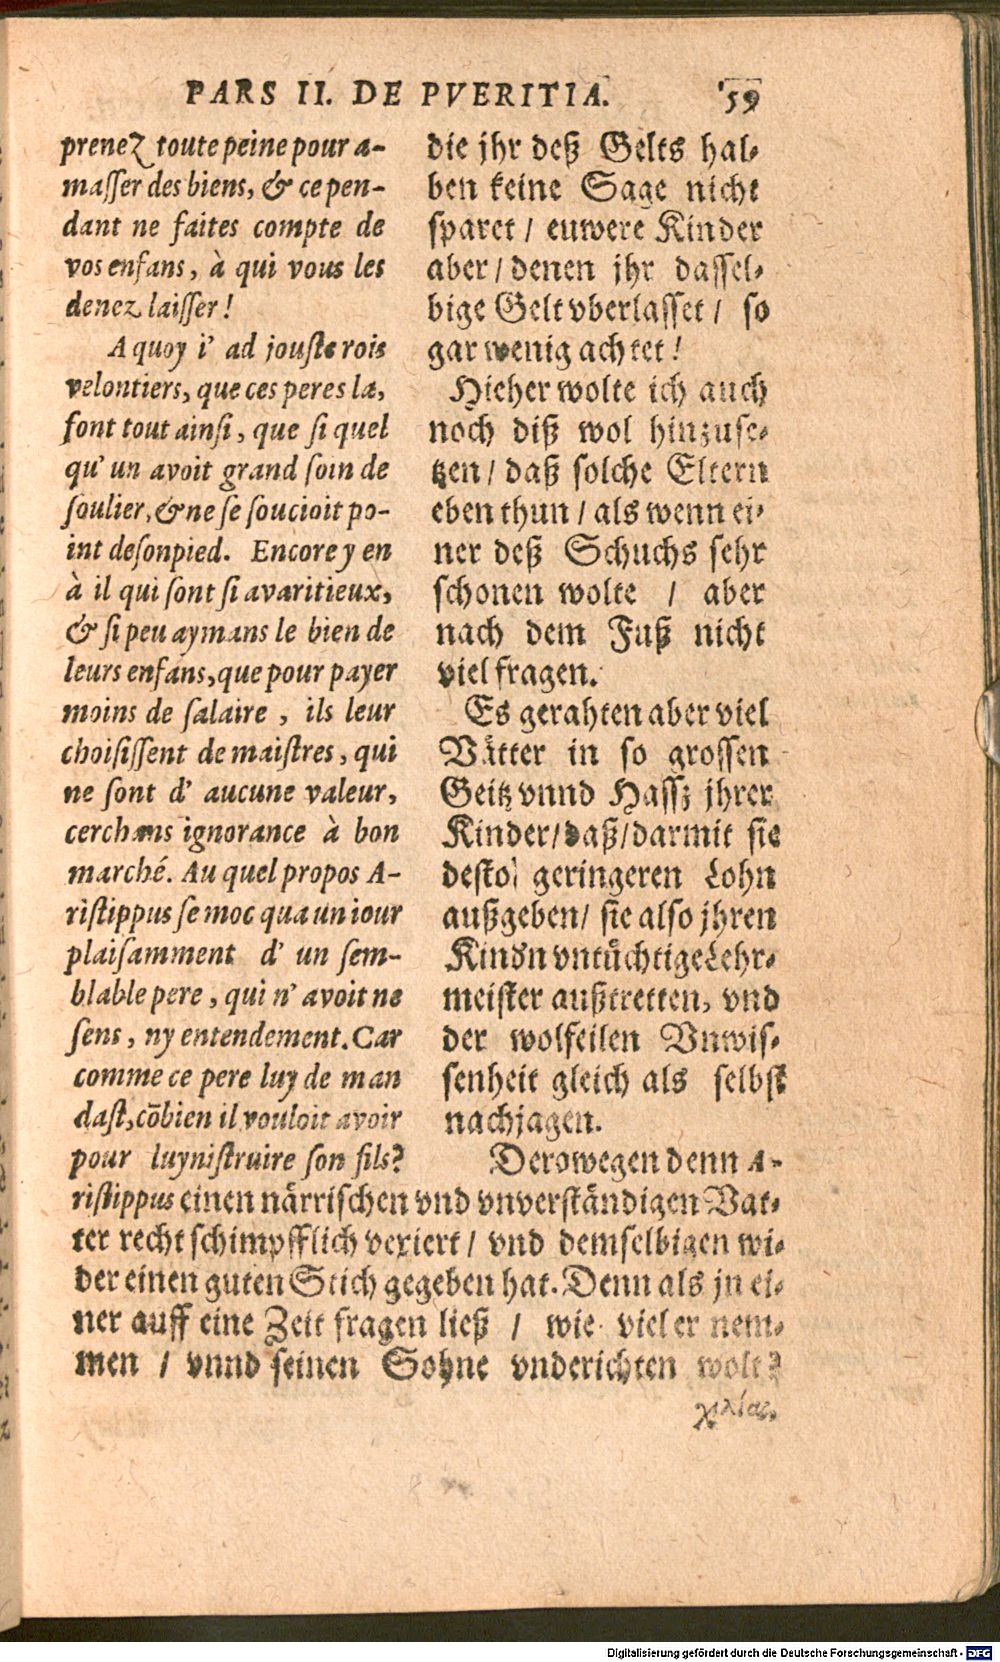 PARS II. DE PVERITIA. 59
prenez toute peine pour a-
masser des biens, & ce pen-
dant ne faites compte de
vos enfans, à qui vous les
denez laisser!
A quoy i' ad jousterois
velontiers, que ces peres la,
font tout ainsi, que si quel
qu' un avoit grand soin de
soulier, & ne se soucioit po-
int desonpied. Encore y en
à il qui sont si avaritieux,
& si peu aymans le bien de
leurs enfans, que pour payer
moins de salaire, ils leur
choisissent de maistres, qui
ne sont d' aucune valeur,
cerchans ignorance à bon
marché. Au quel propos A-
ristippus se moc qua un iour
plaisamment d' un sem-
blable pere, qui n' avoit ne
sens, ny entendement. Car
comme ce pere luy de man
dast, cõbien il vouloit avoir
pour luynistruire son fils?
die jhr deß Gelts hal-
ben keine Sage nicht
sparet / euwere Kinder
aber / denen jhr dassel-
bige Gelt vberlasset / so
gar wenig achtet!
Hieher wolte ich auch
noch diß wol hinzuse-
tzen / daß solche Eltern
eben thun / als wenn ei-
ner deß Schuchs sehr
schonen wolte / aber
nach dem Fuß nicht
viel fragen.
Es gerahten aber viel
Vätter in so grossen
Geitz vnnd Hassz jhrer
Kinder / daß / darmit sie
desto geringeren Lohn
außgeben / sie also jhren
Kindn vntüchtige Lehr-
meister außtretten, vnd
der wolfeilen Vnwis-
senheit gleich als selbst
nachjagen.
Derowegen denn A-
ristippus einen närrischen vnd vnverständigen Vat-
ter recht schimpfflich vexiert / vnd demselbigen wi-
der einen guten Stich gegeben hat. Denn als jn ei-
ner auff eine Zeit fragen ließ / wie viel er nem-
men / vnnd seinen Sohne vnderichten wolt?
χιλίας,
Digitalisierung gefördert durch die Deutsche Forschungsgemeinschaft - DFG